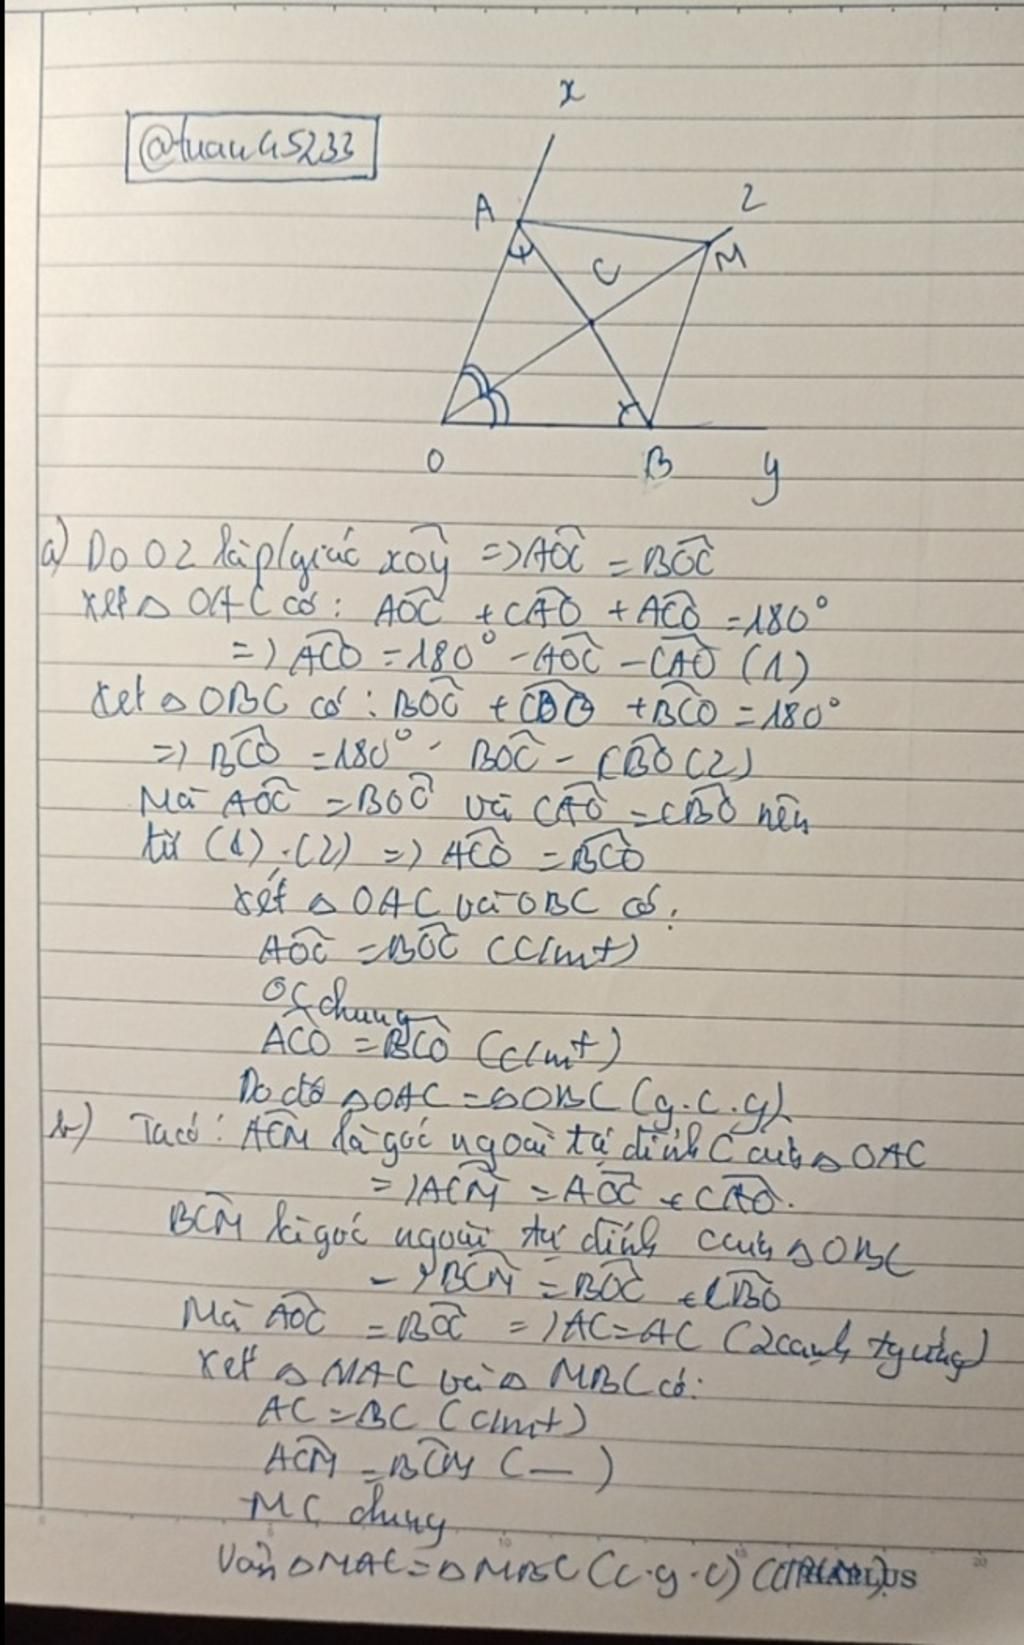 x
@tuan45233
A
z
C
M
O
B
y
a) Do Oz là p/giác xOy => AOC = BOC
Xét △ OAC có: AOC + CAO + ACO = 180°
=> ACO = 180° - AOC - CAO (1)
Xét △ OBC có: BOC + CBO + BCO = 180°
=> BCO = 180° - BOC - CBO (2)
Mà AOC = BOC và CAO = CBO nên
từ (1), (2) => ACO = BCO
Xét △ OAC và OBC có:
AOC = BOC (c/mt)
OC chung
ACO = BCO (c/mt)
Do đó △OAC = △OBC (g.c.g)
b) Ta có: ACM là góc ngoài tại đỉnh C của △ OAC
=> ACM = AOC + CAO.
BCM là góc ngoài tại đỉnh C của △ OBC
=> BCM = BOC + CBO
Mà AOC = BOC => AC = AC (2 cạnh tg ứng)
Xét △ MAC và △ MBC có:
AC = BC (c/mt)
ACM = BCM ( — )
MC chung
Vậy △MAC = △MBC (c.g.c)